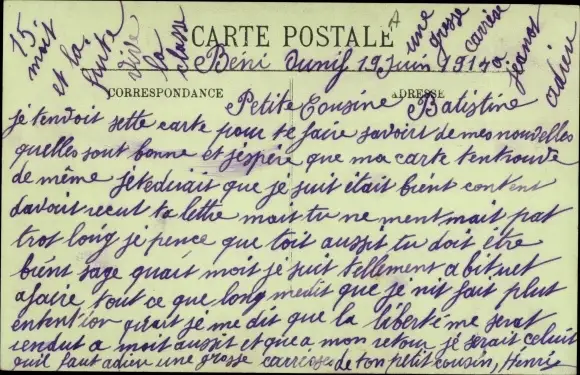 15
mait
et la
fuite
vive
la
classe
CARTE POSTALE
A
une
grosse
carrèse
a
jeanot
adieu
Béni Ounif 19 Juin 1914
CORRESPONDANCE
ADRESSE
Petite Cousine Batistine
je tendoit sette carte pour te faire savoirt de mes nouvelles
quelles sont bonne et j'espère que ma carte t'entrouve
de même je te dirait que je suit était bient content
davoirt recut ta lettre mait tu ne ment mait pat
trot long je pence que toit aussit tu doit être
bient sage quant moit je suit tellement abituet
a faire tout ce que long me dit que je nit fait plut
entention quait je me dit que la liberté me serat
rendut a moit aussit et que a mon retour je serait celuit
quil faut adieu une grosse carresse de ton petit cousin, Henri